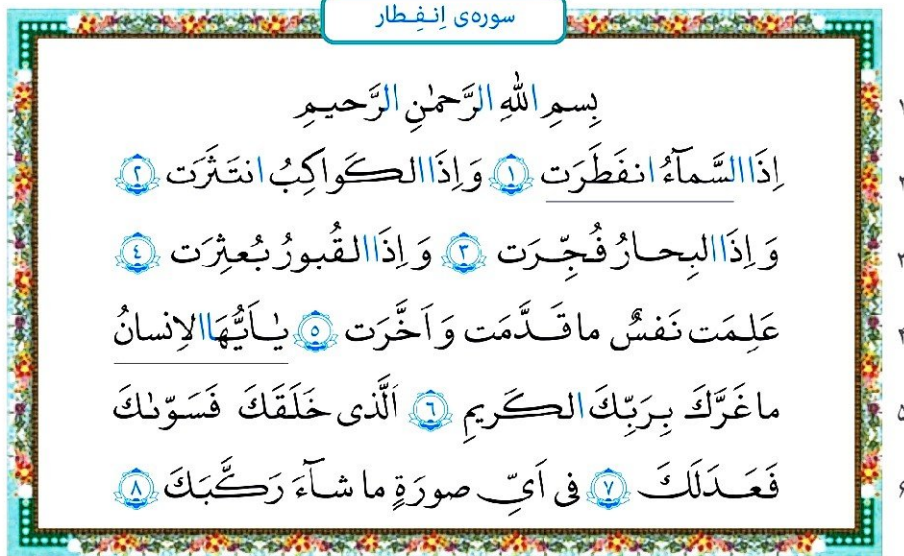 سوره‌ی اِنـفِـطار
بِسمِ اللّٰهِ الرَّحمٰنِ الرَّحیمِ
اِذَا السَّمآءُ انفَطَرَت ١ وَ اِذَا الکَواکِبُ انتَثَرَت ٢
وَ اِذَا البِحارُ فُجِّرَت ٣ وَ اِذَا القُبورُ بُعثِرَت ٤
عَلِمَت نَفسٌ ما قَدَّمَت وَ اَخَّرَت ٥ یٰاَیُّهَا الاِنسانُ
ما غَرَّكَ بِرَبِّكَ الکَریمِ ٦ اَلَّذی خَلَقَكَ فَسَوّىٰكَ
فَعَدَلَكَ ٧ فی اَیِّ صورَةٍ ما شآءَ رَکَّبَكَ ٨